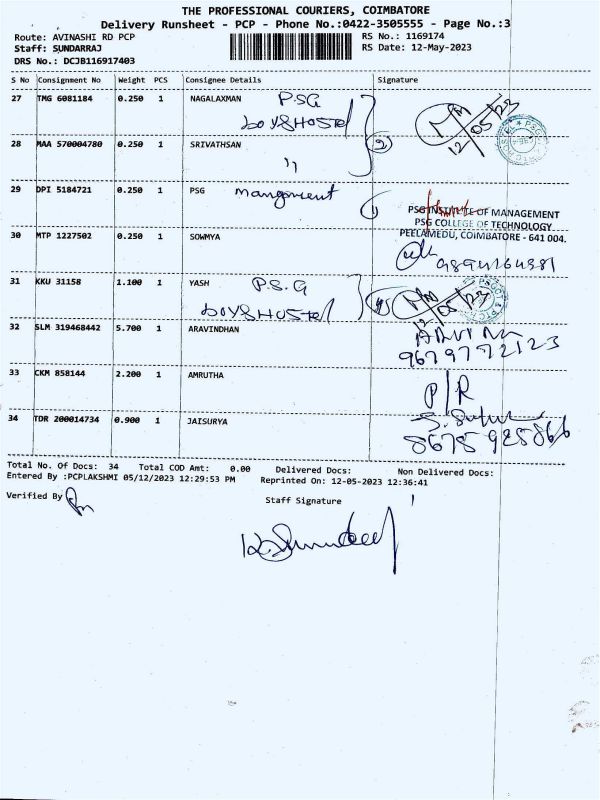 THE PROFESSIONAL COURIERS, COIMBATORE
Delivery Runsheet - PCP - Phone No.:0422-3505555 - Page No.:3
Route: AVINASHI RD PCP RS No.: 1169174
Staff: SUNDARRAJ RS Date: 12-May-2023
DRS No.: DCJB116917403
S No Consignment No Weight PCS Consignee Details Signature
27 TMG 6081184 0.250 1 NAGALAXMAN P.S.G
boys HOSTEL
12/05/23
28 MAA 570004780 0.250 1 SRIVATHSAN 2
29 DPI 5184721 0.250 1 PSG 1
PSG INSTITUTE OF MANAGEMENT
PSG COLLEGE OF TECHNOLOGY
PEELAMEDU, COIMBATORE - 641 004.
30 MTP 1227502 0.250 1 SOWMYA
31 KKU 31158 1.100 1 YASH P.S.G
boys HOSTEL
12/05/23
32 SLM 319468442 5.700 1 ARAVINDHAN
9679772123
33 CKM 858144 2.200 1 AMRUTHA P/R
34 TDR 200014734 0.900 1 JAISURYA
Total No. Of Docs: 34 Total COD Amt: 0.00 Delivered Docs: Non Delivered Docs:
Entered By :PCPLAKSHMI 05/12/2023 12:29:53 PM Reprinted On: 12-05-2023 12:36:41
Verified By Staff Signature